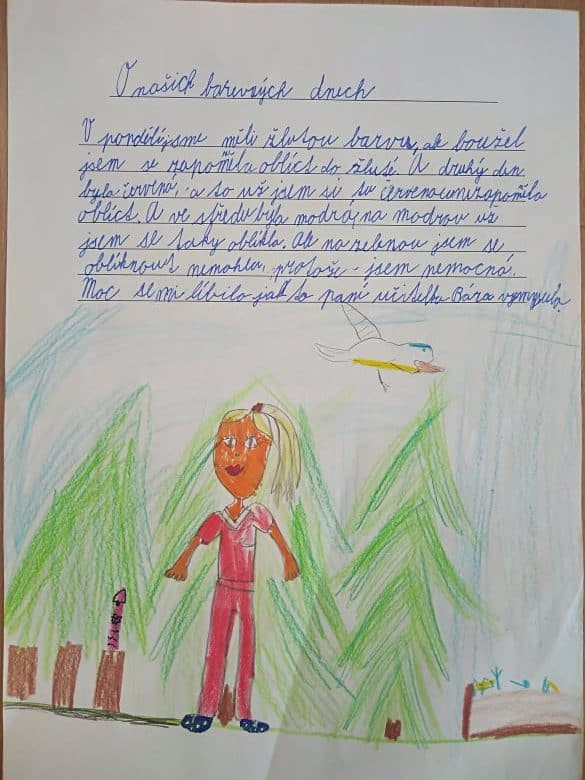 O našich barevných dnech
V pondělí jsme měli žlutou barvu, ale boužel
jsem se zapoměla oblíct do žluté. A druhý den
byla červená, a to už jsem si tu červenou nezapoměla
oblíct. A ve středu byla modrá, na modrou už
jsem se taky oblíkla. Ale na zelenou jsem se
obliknout nemohla, protože - jsem nemocná.
Moc se mi líbilo jak to paní učitelka Bára vymyslela.